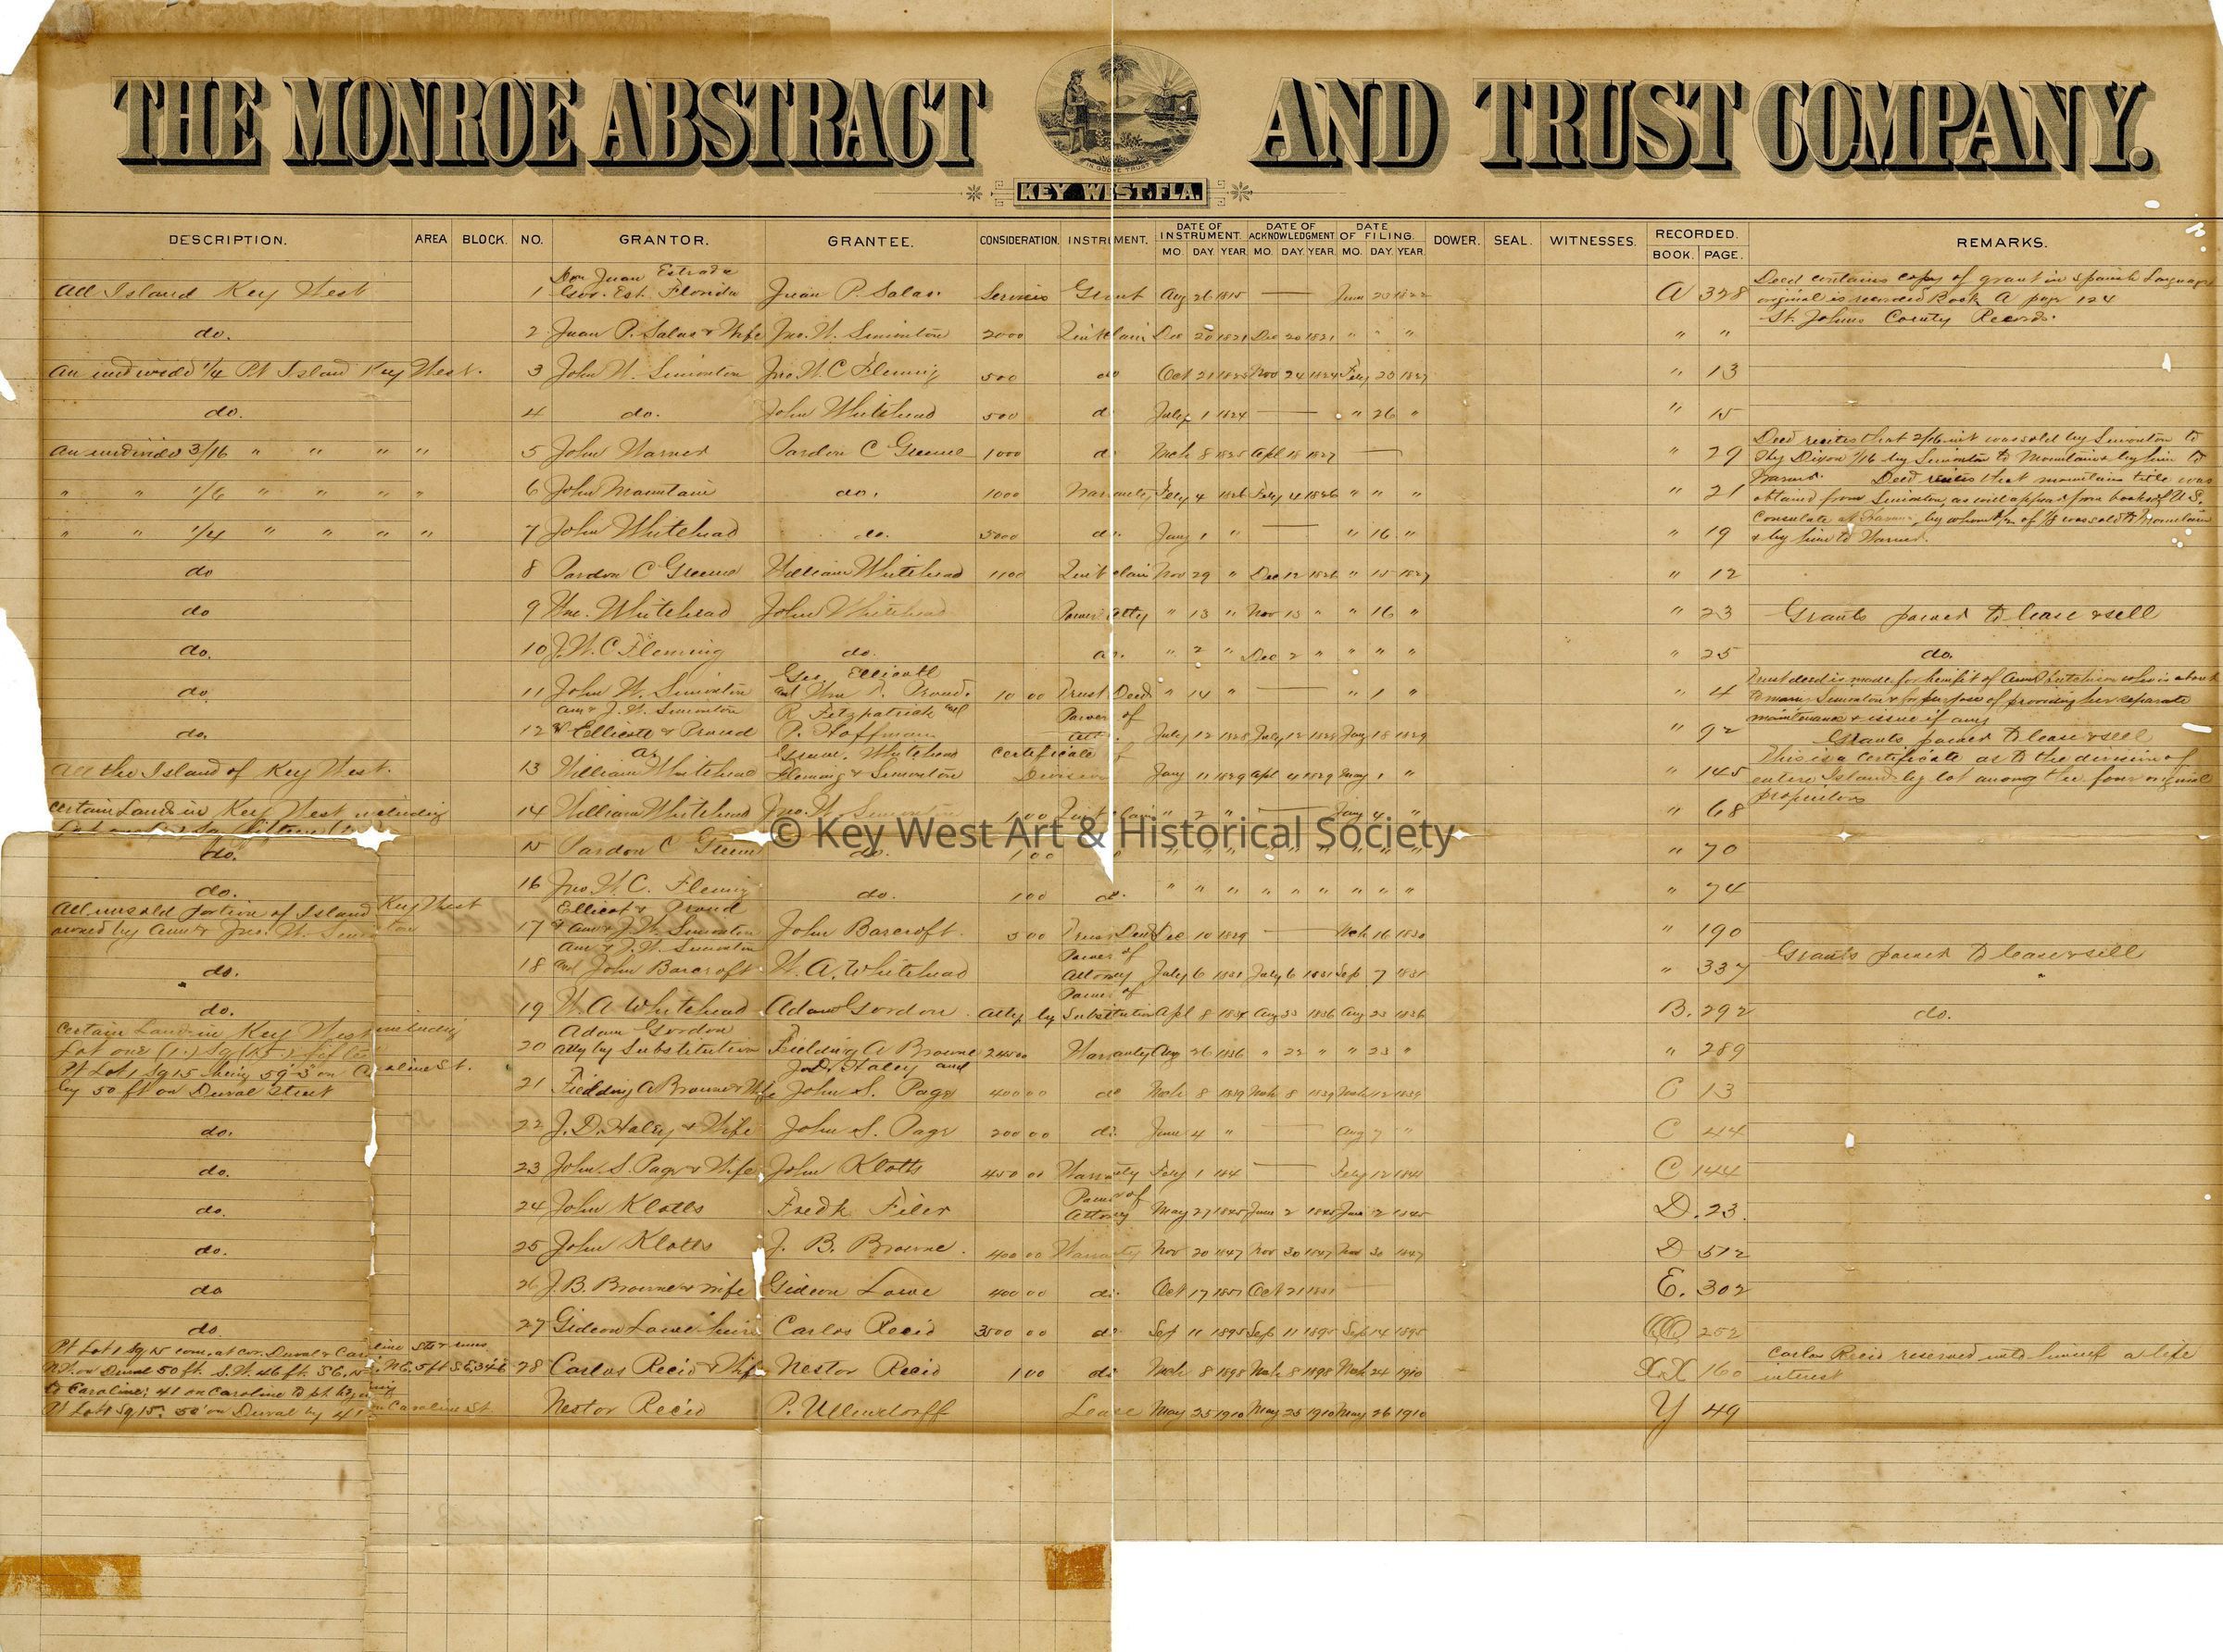 THE MONROE ABSTRACT AND TRUST COMPANY.
IN GOD WE TRUST
KEY WEST, FLA.
DESCRIPTION. AREA BLOCK. NO. GRANTOR. GRANTEE. CONSIDERATION. INSTRUMENT. DATE OF INSTRUMENT. MO. DAY. YEAR. DATE OF ACKNOWLEDGMENT MO. DAY. YEAR. DATE OF FILING. MO. DAY. YEAR. DOWER. SEAL. WITNESSES. RECORDED. BOOK. PAGE. REMARKS.
All Island Key West 1 Don Juan Estrada Gov. Est. Florida Juan P. Salas Services Grant Aug 26 1815 — June 20 A 328 Deed contains copy of grant in Spanish Language
original is recorded Book A page 124
St. Johns County Records.
do. 2 Juan P. Salas & Wife Jno. W. Simonton 2000 Quit Claim Dec 20 1821 Dec 20 1821 " " " " "
An undivided 1/4 Pt Island Key West. 3 John W. Simonton Jno. W. C Fleming 500 do Oct 21 Nov 24 1824 Feby 1827 " 13
do. 4 do. John Whitehead 500 do July 1 1824 — " 26 " " 15
An undivided 3/16 " " " " 5 John Warner Pardon C Greene 1000 do Mch 8 1825 Apl 18 1827 — " 29 Deed recites that 2/16 int was sold by Simonton to
Dixon 1/16 by Simonton to Mountain & by him to
Warner. Deed recites that mountains title was
" " 1/6 " " " " 6 John Mountain do. 1000 Warranty Feby 4 1826 Feby 1826 " " " " 21 obtained from Simonton, as will appear from books of U.S.
Consulate at by whom of 1/8 was sold to Mountain
" " 1/4 " " " " 7 John Whitehead do. 5000 do. Jany 1 " — " 16 " " 19 & by him to Warner.
do 8 Pardon C Greene William Whitehead 1100 Quit Claim Nov 29 " Dec 12 1826 " 15 1827 " 12
do 9 Wm. Whitehead John Whitehead Power Atty " 13 " Nov 13 " " 16 " " 23 Grants power to lease & sell
do. 10 J. W. C Fleming do. do. " 2 " Dec 2 " " " " " 25 do.
do 11 John W. Simonton Geo. Ellicott and Wm P. Proud. 10 00 Trust Deed " 14 " — " 1 " " 4 Trust deed is made for benefit of Ann who is about
to marry Simonton & for purpose of providing her separate
maintenance & issue if any
do. 12 Ann & J. W. Simonton & Ellicott & Proud R Fitzpatrick and P. Hoffman Power of July 12 1828 July 12 1828 Jany 15 1829 " 92 Grants power to lease & sell
All the Island of Key West. 13 William Whitehead Greene, Whitehead Fleming & Simonton Certificate of Division Jany 11 1829 Apl 4 1829 May 1 " " 145 This is a certificate as to the division of
entire Island by lot among the four original
proprietors
Certain Land in Key West including 14 William Whitehead Jno. W Simonton 100 Quit Claim " 2 " — Jany 4 " " 68
© Key West Art & Historical Society
do. 15 Pardon C Greene do. 100 " " " " " " " " " " 70
do. 16 Jno W. C. Fleming do. 100 do. " " " " " " " " " " 74
All unsold portion of Island Key West
owned by Ann & Jno. W. Simonton 17 Ellicot & Proud & Ann & J. W. Simonton John Barcroft 500 Trust Deed Dec 10 1829 — Mch 16 1830 " 190
do. 18 Ann & J. W. Simonton and John Barcroft W. A. Whitehead Power of Attorney July 6 1831 July 6 1831 Sep 7 1831 " 337 Grants power to lease & sell
do. 19 W. A Whitehead Adam Gordon Atty by Power of Substitution Apl 8 Aug 23 1836 Aug 23 1836 B. 292 do.
Certain Land in Key West including
Lot one (1.) Sq (15.) fifteen 20 Adam Gordon Atty by Substitution Fielding A Browne Warranty Aug 26 1836 " 22 " " 23 " " 289
Pt Lot 1 Sq 15 being 59'-3" on Caroline St.
by 50 ft on Duval Street 21 Fielding A Browne & Wife J. D. Haley and John S. Page 400 00 do Mch 8 1839 Mch 8 1839 Mch 12 1839 C 13
do. 22 J. D. Haley & Wife John S. Page 200 00 do. June 4 " — Aug 7 " C 44
do. 23 John S. Page & Wife John Klotts 450 00 Warranty Feby 1 — Feby 12 C 144
do. 24 John Klotts Fredk Filer Power of Attorney May 27 1845 June 2 1845 June 2 1845 D. 23.
do. 25 John Klotts J. B. Browne. 400 00 Warranty Nov 20 1847 Nov 30 1847 Nov 30 1847 D 512
do 26 J. B. Browne & wife Gideon Lowe 400 00 do. Oct 17 1851 Oct 21 1851 — E. 302
do. 27 Gideon Lowe heirs Carlos Recio 3500 00 do Sep 11 1895 Sept 11 1895 Sept 14 1895 QQ 252
Pt Lot 1 Sq 15 com. at cor. Duval & Caroline Sts & runs
N.W. on Duval 50 ft. S.W. 46 ft. S E. N.E. 5 ft 28 Carlos Recio & Wife Nestor Recio 1 00 do Mch 8 1898 Mch 8 1898 Mch 24 1910 XX 160 Carlos Recio reserved unto himself a life
interest
to Caroline; 41 on Caroline to pt beginning
Pt Lot 1 Sq 15. 50' on Duval by 41 on Caroline St Nestor Recio P. Ullendorff Lease May 25 1910 May 25 1910 May 26 1910 Y 49